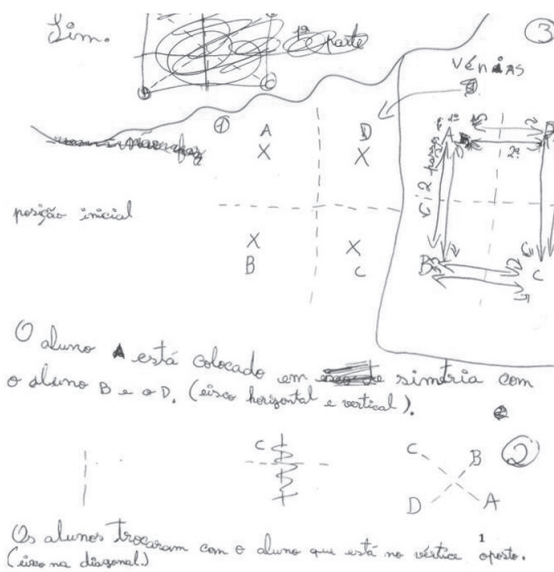 Sim.
1ª parte
③
vénias
① A D
X X
posição inicial
X X
B C
A
B C
O aluno A está colocado em simetria com
o aluno B e o D. (eixo horizontal e vertical).
C
②
C B
D A
Os alunos trocaram com o aluno que está no vértice oposto.
1
(eixo na diagonal)